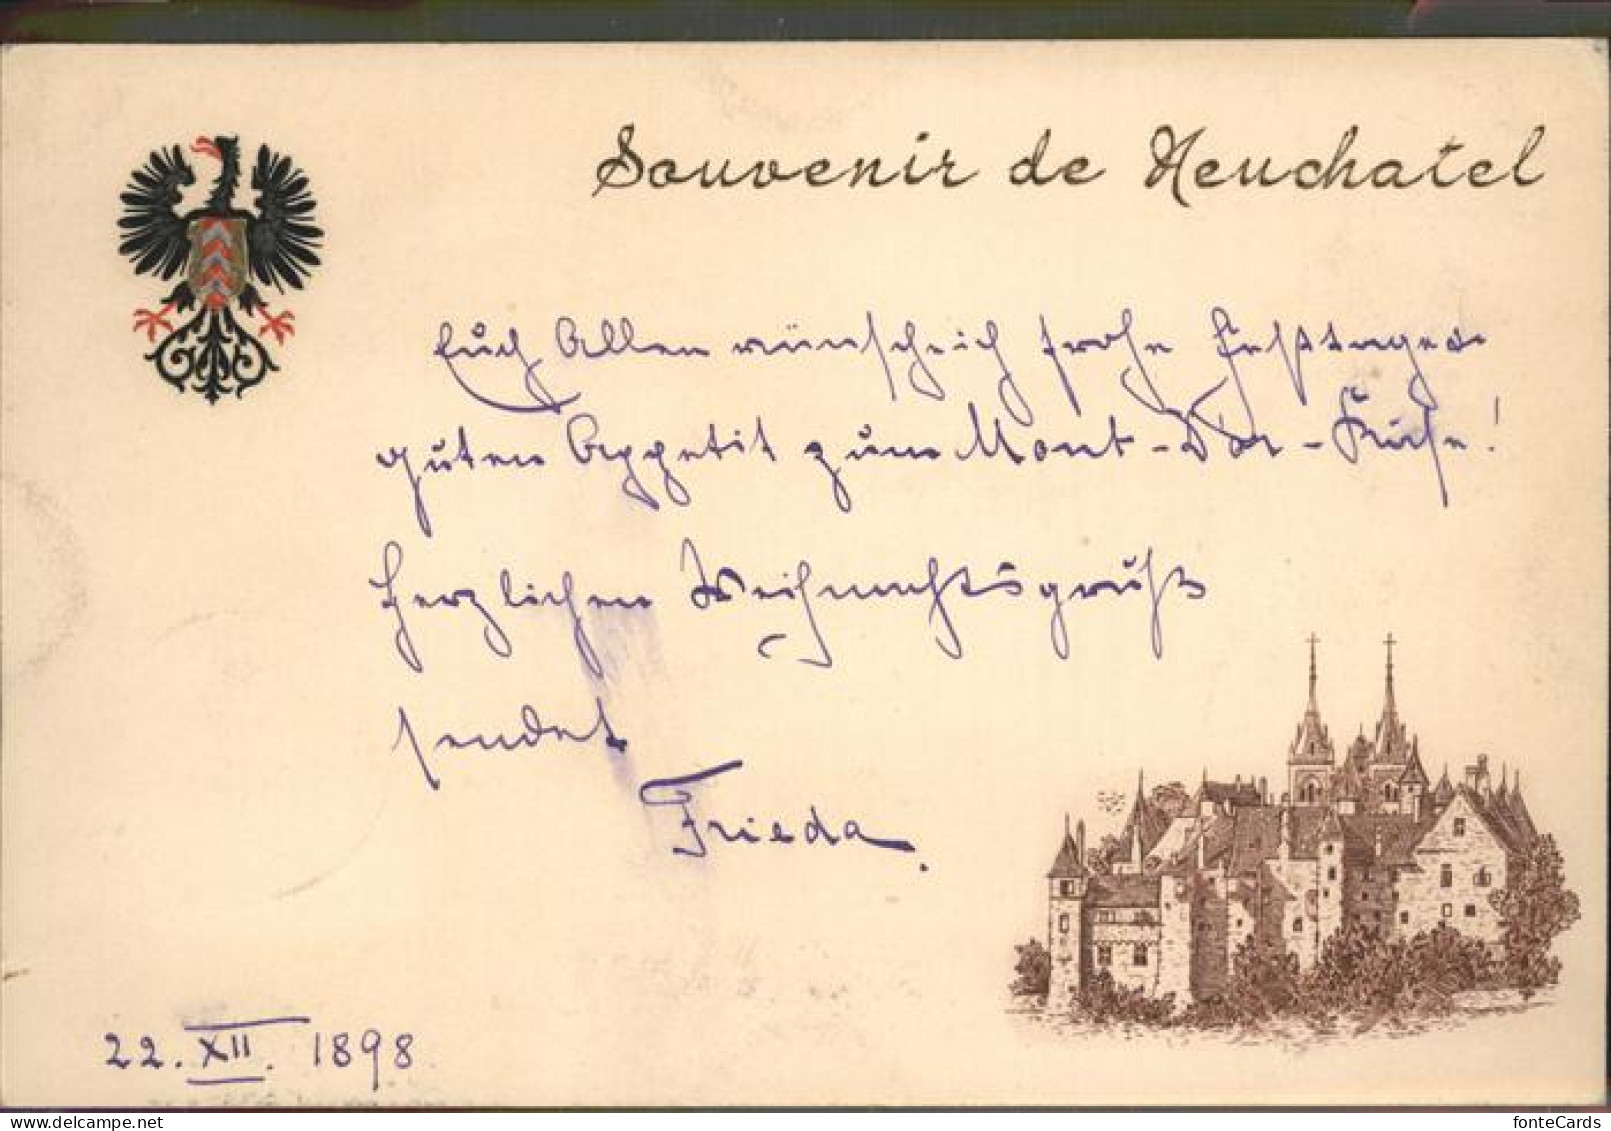 Souvenir de Neuchatel
Euch Allen wünsche ich frohe Festtage &
guten Appetit zum Mont-D'or-Käse!
Herzlichen Weihnachtsgruß
sendet
Frieda.
22. XII. 1898
fonteCards